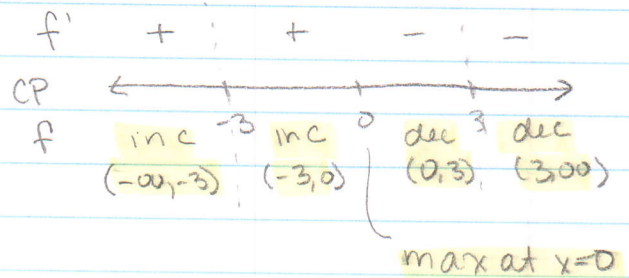 f' + + - -
CP
-3 0 3
f inc inc dec dec
(-∞,-3) (-3,0) (0,3) (3,∞)
max at x=0